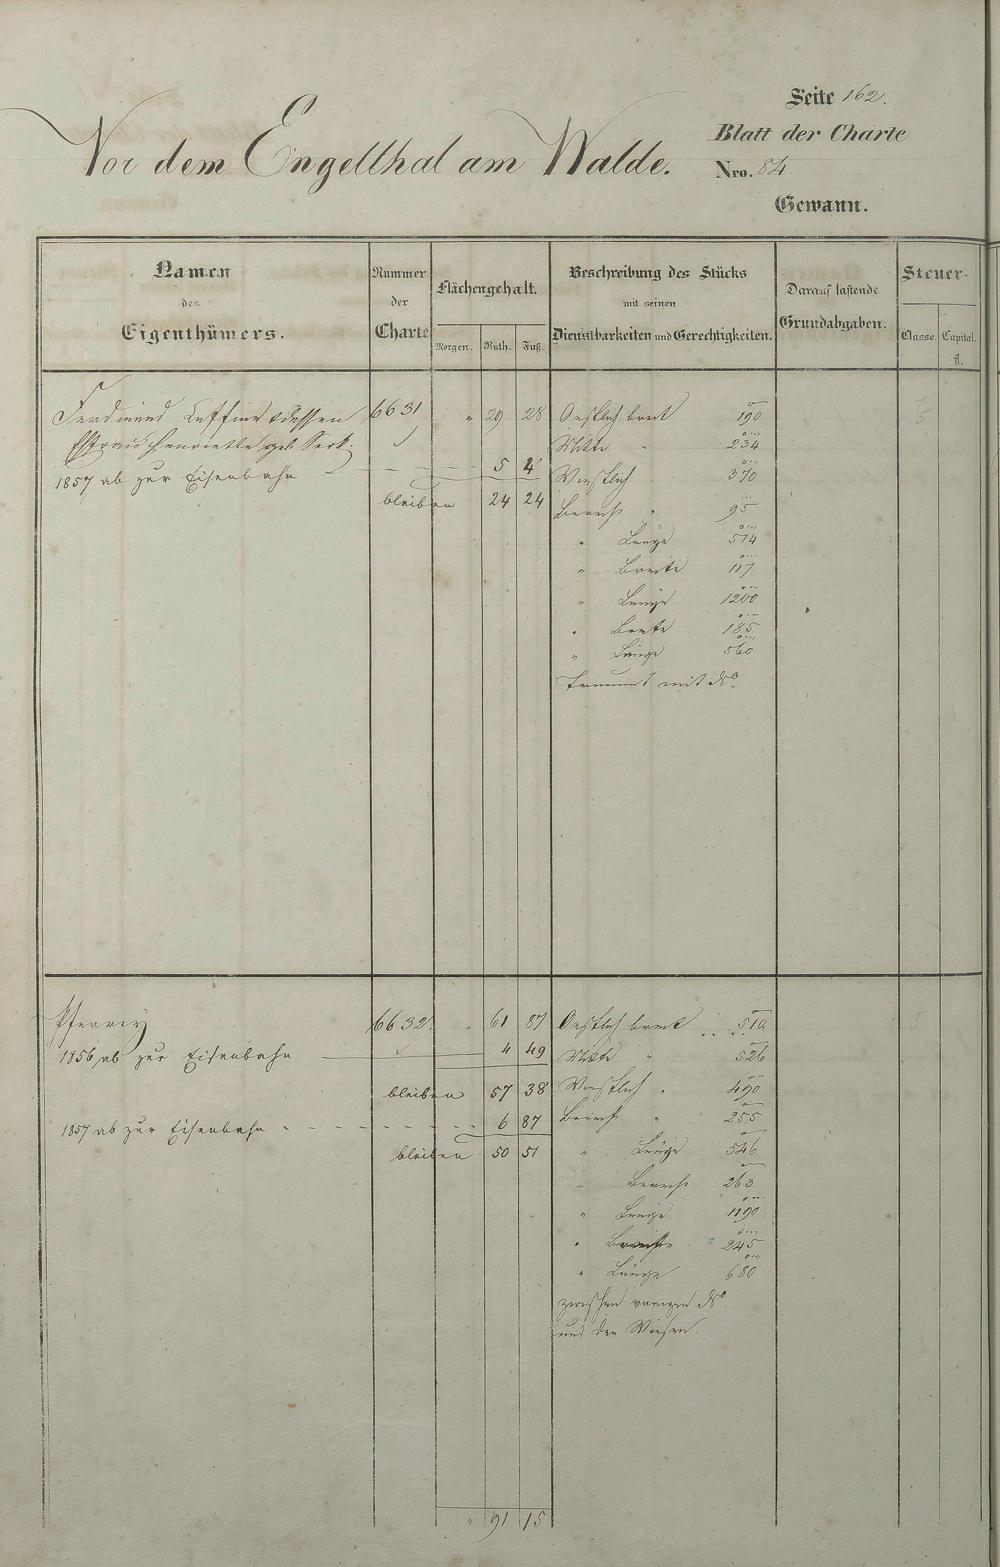 Seite 162.
Blatt der Charte
Vor dem Engelthal am Walde. Nro. 84
Gewann.
Namen des Eigenthümers.
Nummer der Charte
Flächengehalt.
Morgen. Ruth. Fuß.
Beschreibung des Stücks mit seinen Dienstbarkeiten und Gerechtigkeiten.
Darauf lastende Grundabgaben.
Steuer-
Classe. Capital. fl.
Ferdinand dessen 6631 " 29 28 Oestlich breit 190
Ehefrau Henriette geb. Mitte " 234
1857 ab zur Eisenbahn 5 4 Westlich 370
bleiben 24 24 " 95
" Länge 514
" Breite 117
" Länge 1200
" Breite 185
" Länge 560
mit No.
Pfarrey 6632 " 61 87 Oestlich breit 510
1856 ab zur Eisenbahn 4 49 Mitte " 526
bleiben 57 38 Westlich " 490
1857 ab zur Eisenbahn 6 87 " 255
bleiben 50 51 " Länge 546
" 263
" Länge 1190
" Breite 245
" Länge 680
zwischen voriger No.
und den Wiesen.
" 91 15